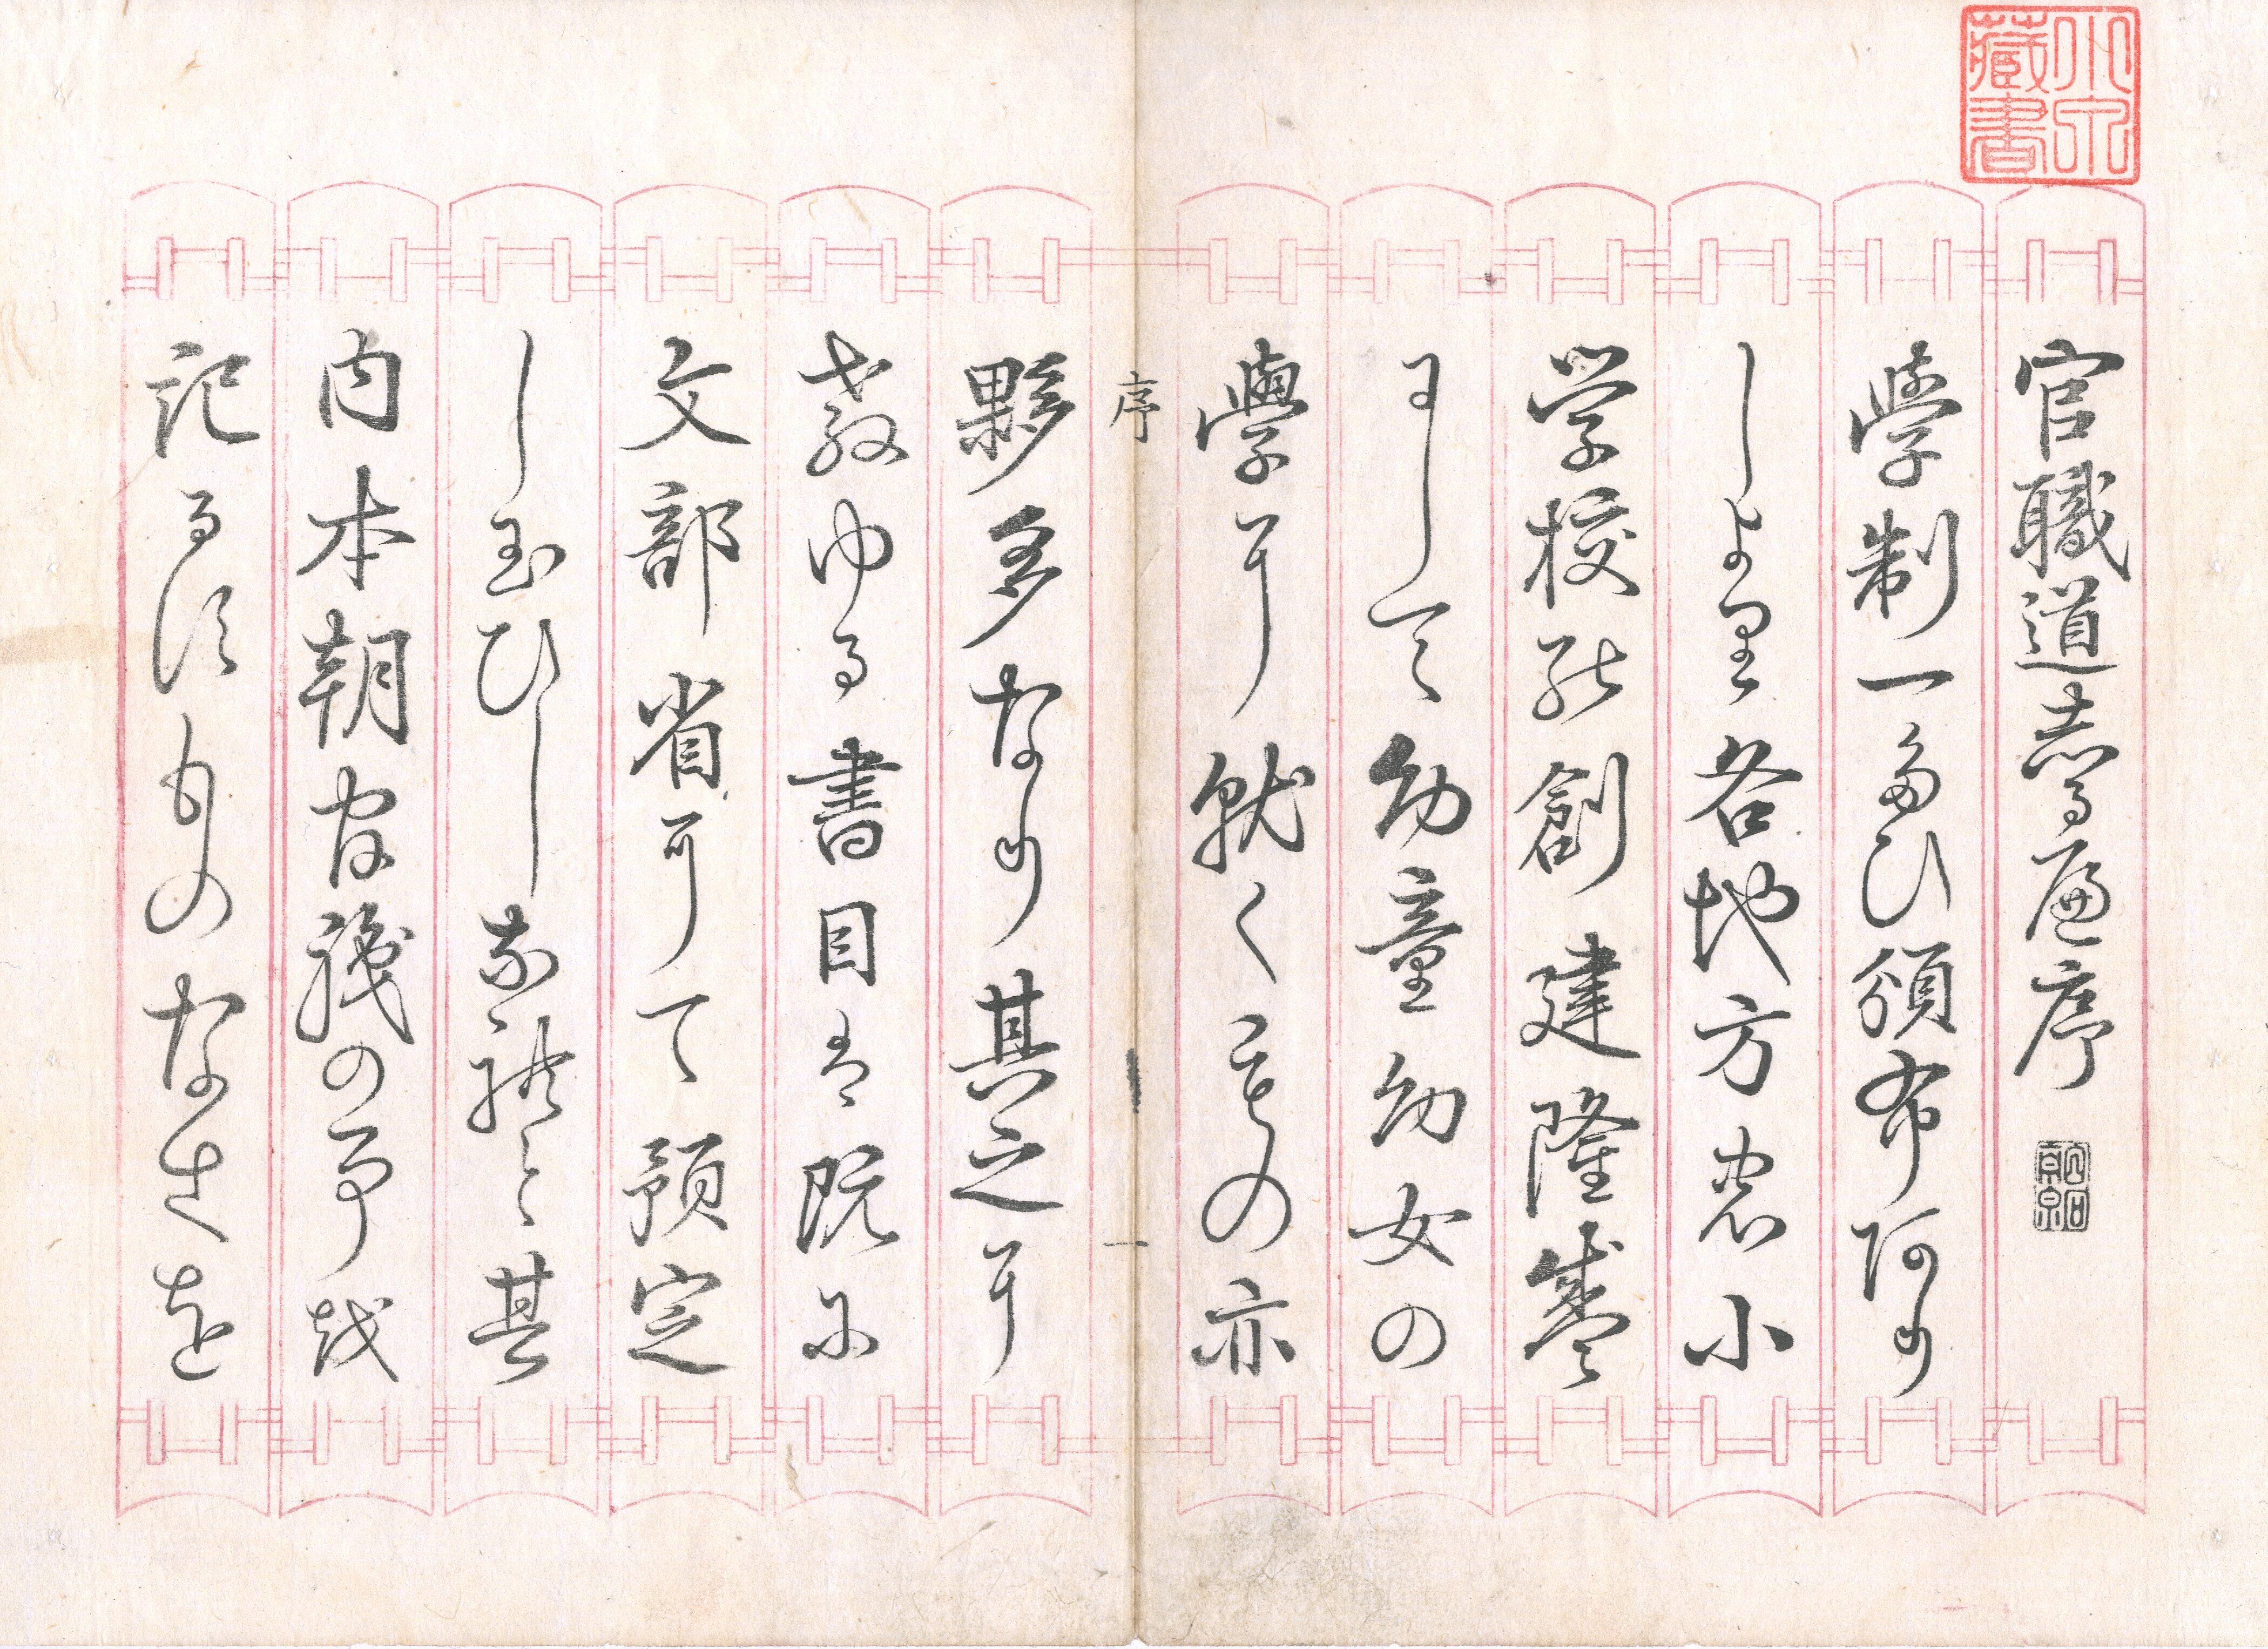 官職道志るへ序
學制一たひ頒布あり
しより各地方の小
学校の創建隆盛
にして幼童幼女の
學に就くもの亦
序
一
夥多なり其之に
教ゆる書目は既に
文部省にて預定
し玉ひしなれと其
内本朝官職の事を
記るすものなきを
藏書